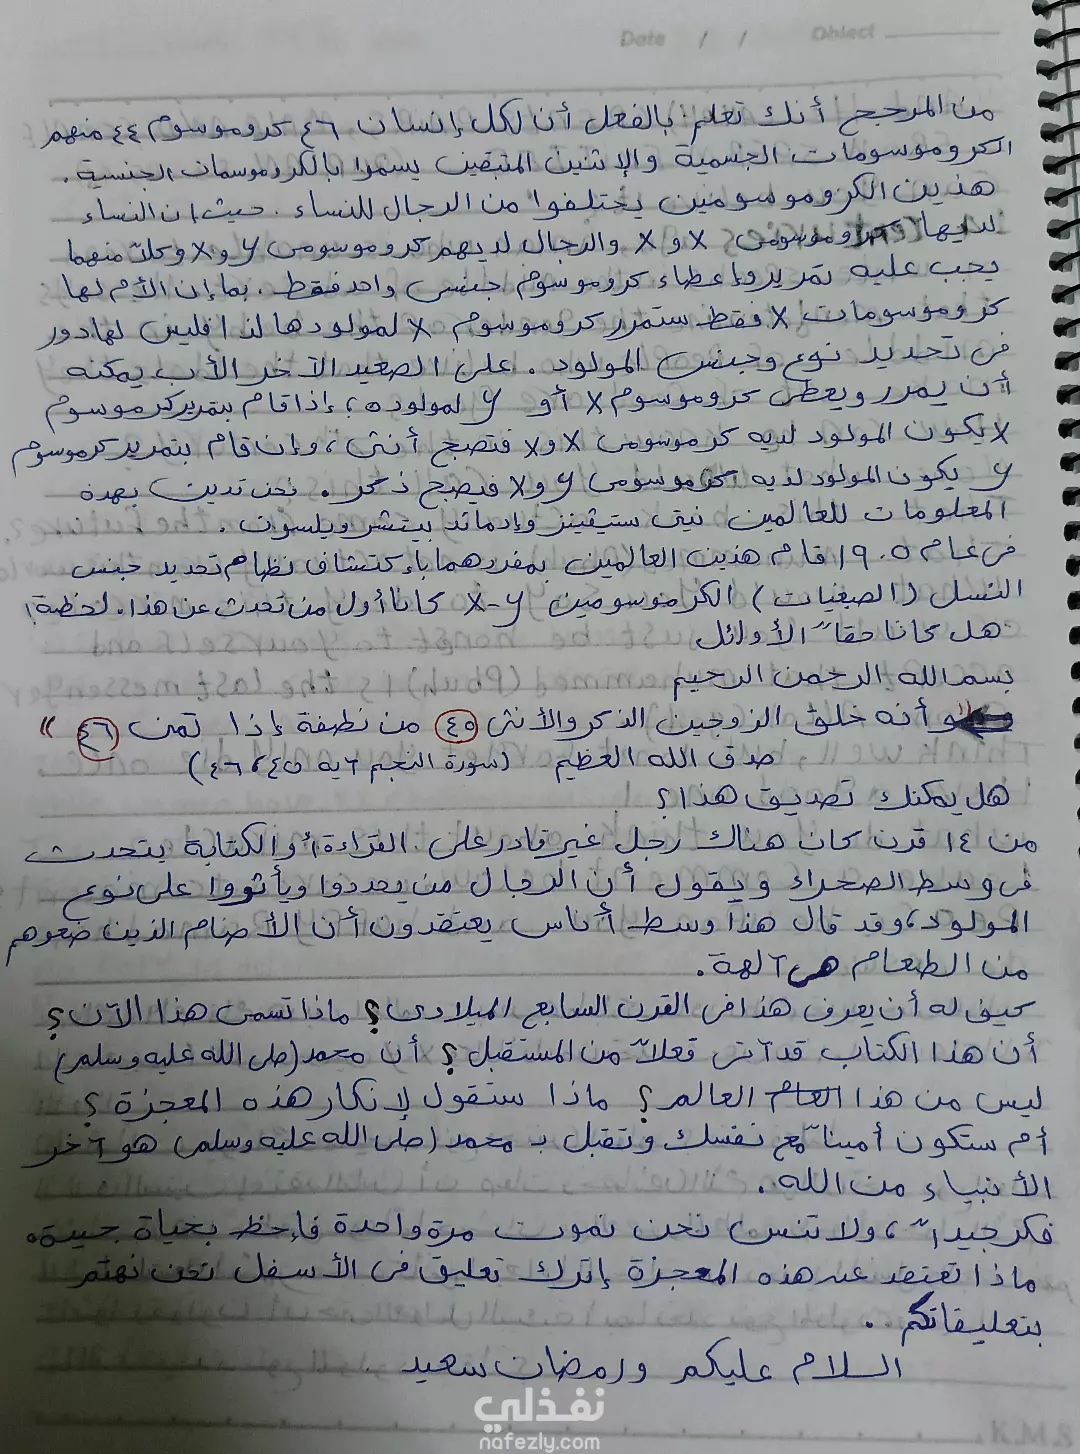 Date / / Object
من المرجح أنك تعلم بالفعل أن لكل إنسان ٤٦ كروموسوم ٤٤ منهم
الكروموسومات الجسمية والإثنين المتبقين يسموا بالكروموسمات الجنسية.
هذين الكروموسومين يختلفوا من الرجال للنساء. حيث ان النساء
لديها كروموسومى x و x والرجال لديهم كروموسومى y و x وكلاً منهما
يجب عليه تمرير وإعطاء كروموسوم جنسى واحد فقط. بما إن الأم لها
كروموسومات x فقط ستمرر كروموسوم x لمولودها لذا فليس لها دور
فى تحديد نوع وجنس المولود. على الصعيد الآخر الأب يمكنه
أن يمرر ويعطى كروموسوم x أو y لمولوده؛ إذا قام بتمرير كرموسوم
x يكون المولود لديه كرموسومى x و x فتصبح أنثى، وإن قام بتمرير كرموسوم
y يكون المولود لديه كرموسومى y و x فيصبح ذكر. نحن ندين بهذة
المعلومات للعالمين نيتى ستيفينز وإدماند بيتشر ويلسون.
فى عام ١٩٠٥ قام هذين العالمين بمفردهما بإكتشاف نظام تحديد جنس
النسل (الصبغيات) الكرموسومين x-y كانا أول من تحدث عن هذا. لحظة!
هل كانا حقاً الأوائل
بسم الله الرحمن الرحيم
"و أنه خلق الزوجين الذكر والأنثى ٤٥ من نطفة إذا تمنى ٤٦"
صدق الله العظيم (سورة النجم آيه ٤٥،٤٦)
هل يمكنك تصديق هذا؟
من ١٤ قرن كان هناك رجل غير قادر على القراءة أو الكتابة يتحدث
فى وسط الصحراء ويقول أن الرجال من يحددوا ويأثروا على نوع
المولود، وقد قال هذا وسط أناس يعتقدون أن الأصنام الذين صنعوهم
من الطعام هى آلهة.
كيف له أن يعرف هذا فى القرن السابع الميلادى؟ ماذا تسمى هذا الآن؟
أن هذا الكتاب قد آتى فعلاً من المستقبل؟ أن محمد (صلى الله عليه وسلم)
ليس من هذا العالم؟ ماذا ستقول لإنكار هذه المعجزة؟
أم ستكون أميناً مع نفسك وتقبل بـ محمد (صلى الله عليه وسلم) هو آخر
الأنبياء من الله.
فكر جيداً، ولا تنسى نحن نموت مرة واحدة فإحظ بحياة جيدة.
ماذا تعتقد عن هذه المعجزة إترك تعليق فى الأسفل نحن نهتم
بتعليقاتكم.
السلام عليكم ورمضان سعيد
نفذلي
nafezly.com
K.M.S